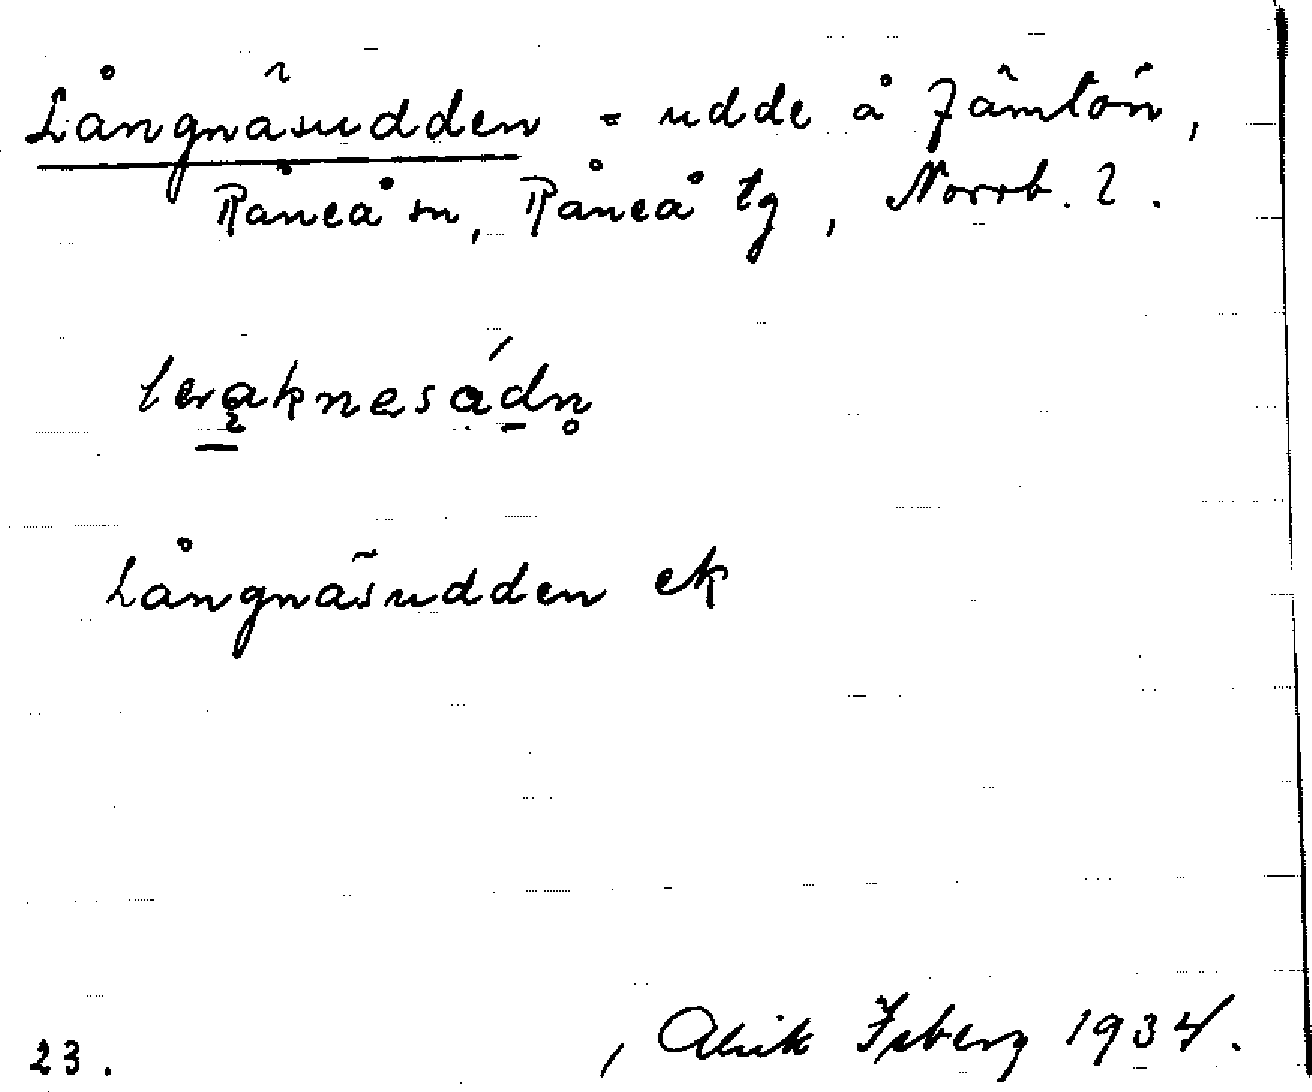 Långnäsudden = udde å Jämtön,
Råneå sn, Råneå tg, Norrb. l.
Långnäsudden ek
23. Alrik Isberg 1934.